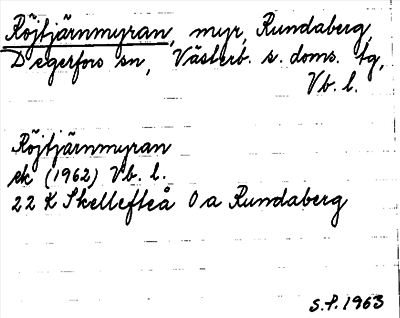 Röjtjärnmyran, myr, Rundaberg,
Degerfors sn, Västerb. s. doms. tg,
Vb. l.
Röjtjärnmyran
ek (1962) Vb. l.
22 K Skellefteå 0 a Rundaberg
S.P. 1963